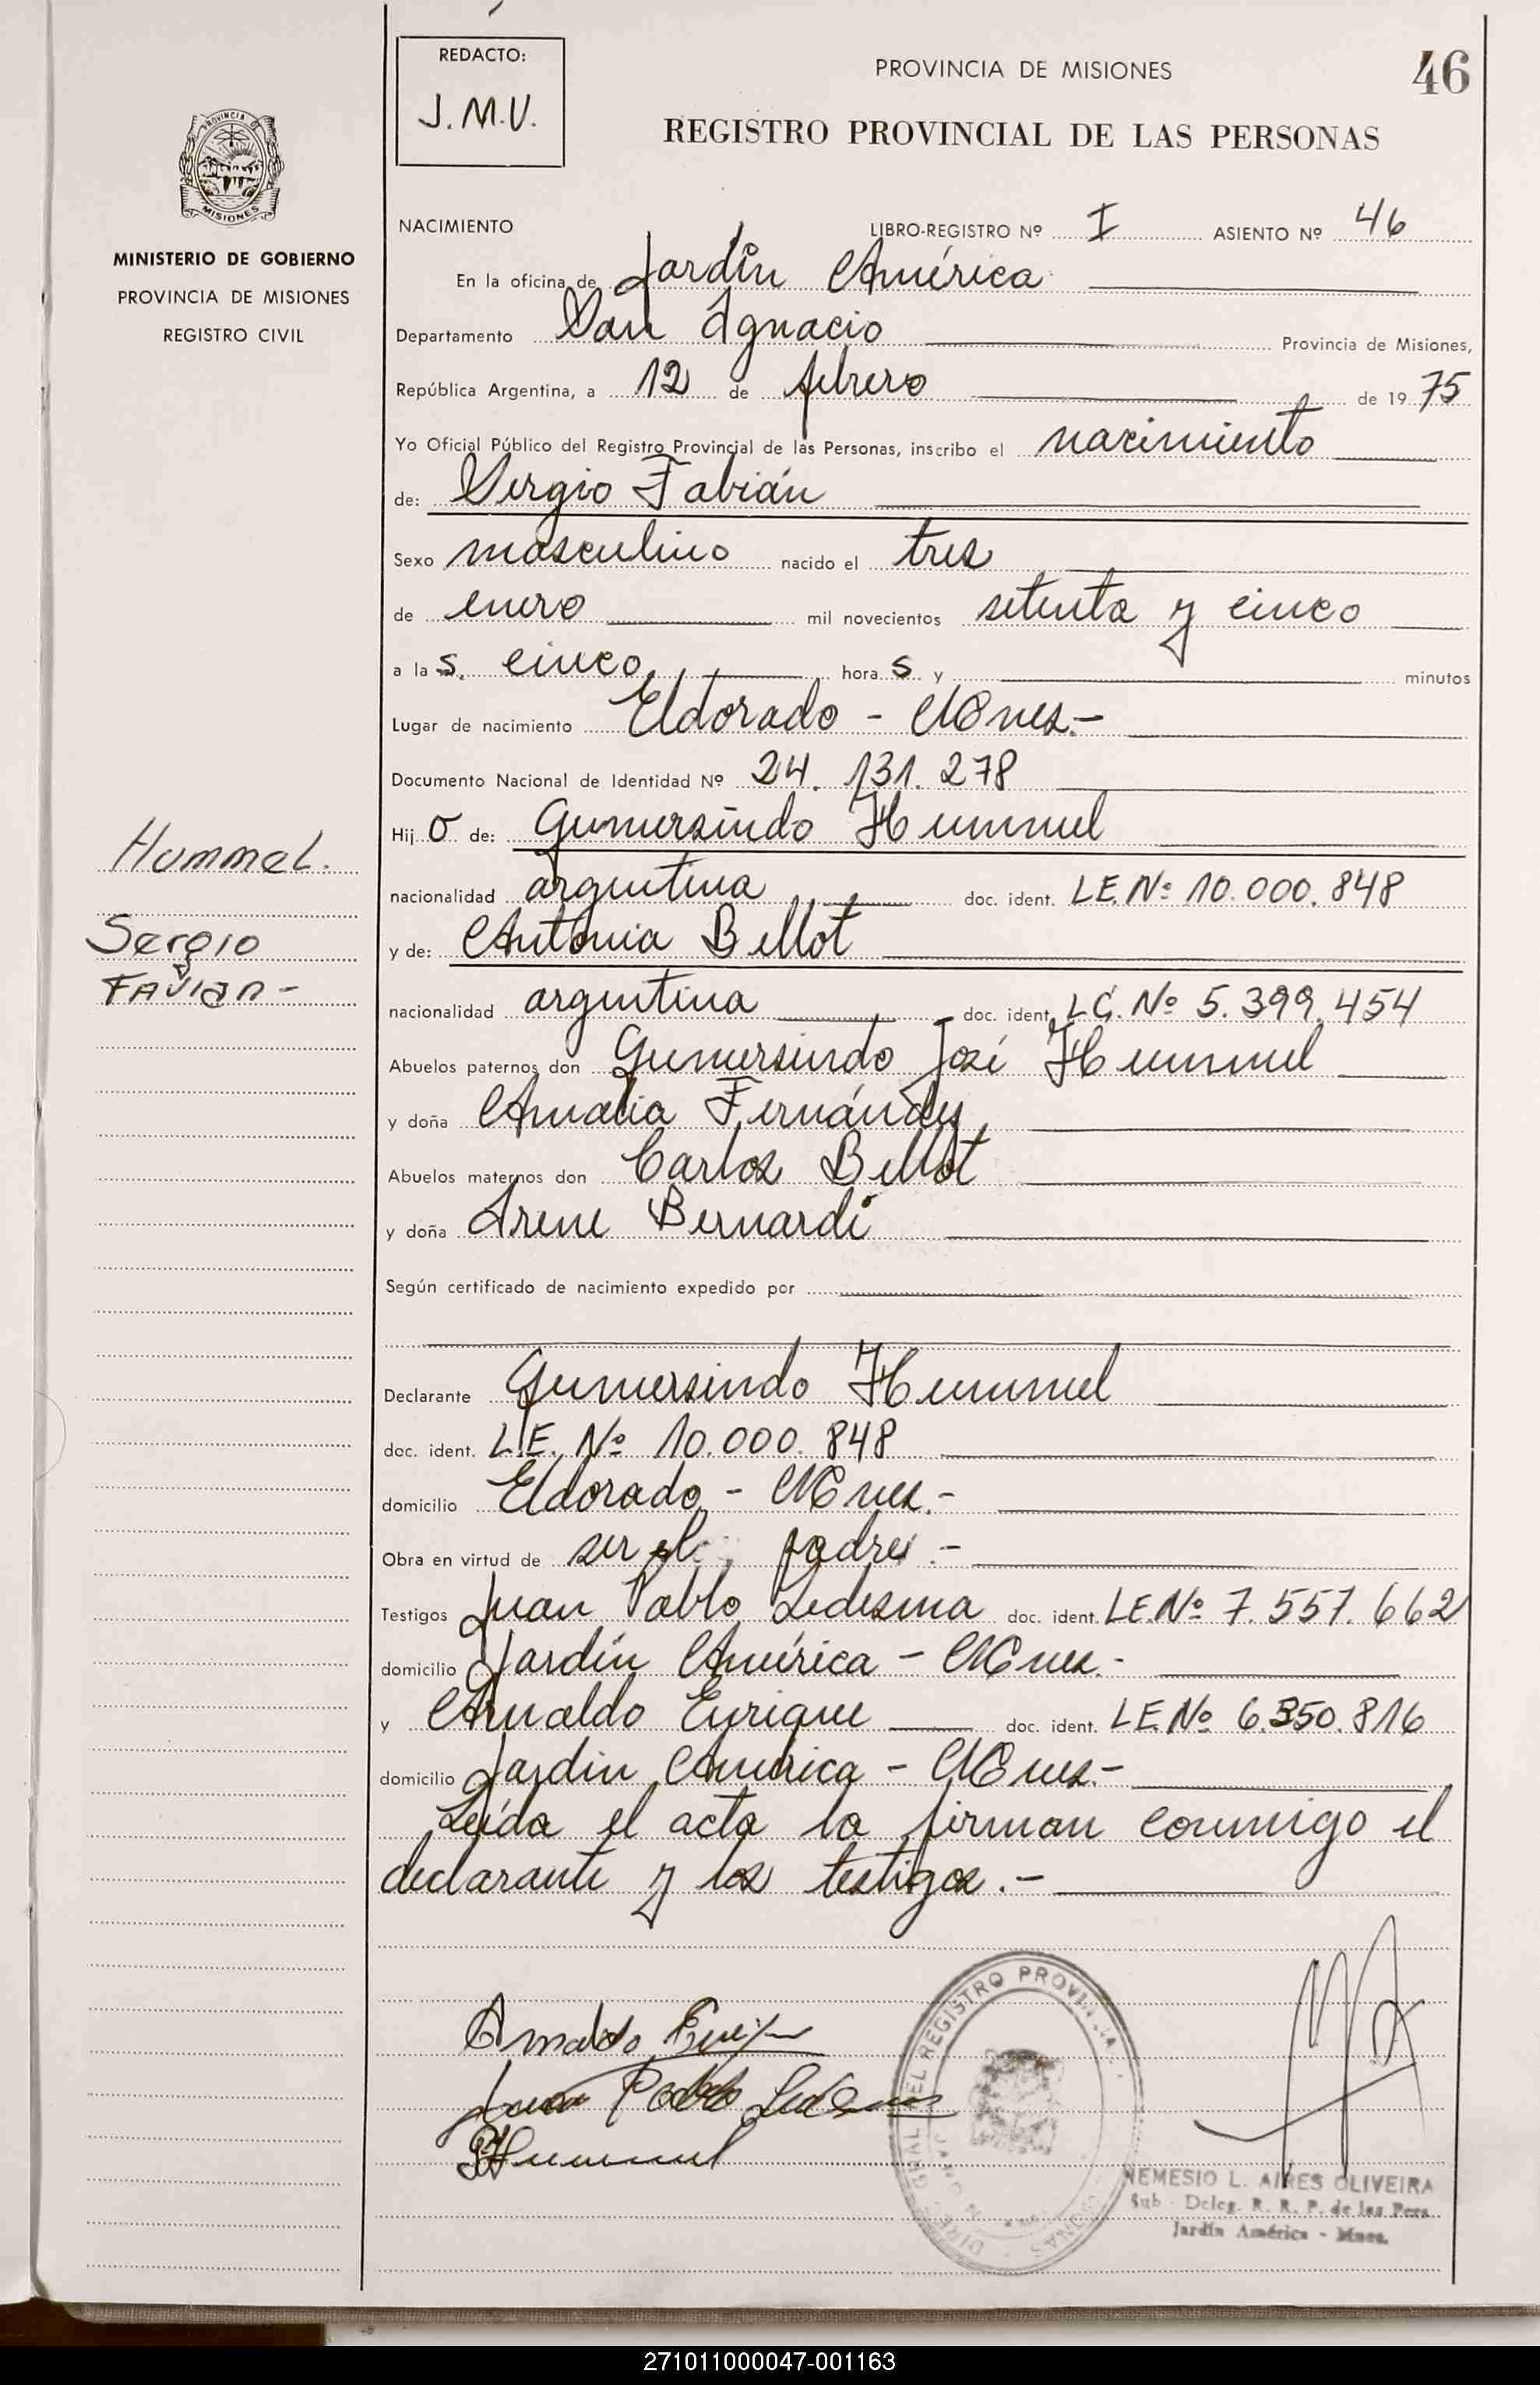 REDACTO:
J.M.V.
PROVINCIA DE MISIONES
46
REGISTRO PROVINCIAL DE LAS PERSONAS
PROVINCIA DE
MISIONES
MINISTERIO DE GOBIERNO
PROVINCIA DE MISIONES
REGISTRO CIVIL
NACIMIENTO LIBRO-REGISTRO Nº I ASIENTO Nº 46
En la oficina de Jardín América
Departamento San Ignacio Provincia de Misiones,
República Argentina, a 12 de febrero de 1975
Yo Oficial Público del Registro Provincial de las Personas, inscribo el nacimiento
de: Sergio Fabián
Sexo masculino nacido el tres
de enero mil novecientos setenta y cinco
a las. cinco horas y minutos
Lugar de nacimiento Eldorado - Mnes.-
Documento Nacional de Identidad Nº 24.131.278
Hijo de: Gumersindo Hummel
Hummel.
nacionalidad argentina doc. ident. L.E. Nº 10.000.848
Sergio
y de: Antonia Bellot
Favian -
nacionalidad argentina doc. ident. L.C. Nº 5.399.454
Abuelos paternos don Gumersindo José Hummel
y doña Amalia Fernández
Abuelos maternos don Carlos Bellot
y doña Irene Bernardi
Según certificado de nacimiento expedido por
Declarante Gumersindo Hummel
doc. ident. L.E. Nº 10.000.848
domicilio Eldorado - Mnes.-
Obra en virtud de ser el padre.-
Testigos Juan Pablo Ledesma doc. ident. L.E. Nº 7.557.662
domicilio Jardín América - Mnes.-
y Arnaldo Eyrique doc. ident. L.E. Nº 6.350.816
domicilio Jardin América - Mnes.-
Leída el acta la firman conmigo el
declarante y los testigos.-
Arnaldo
Juan Pablo Ledesma
Hummel
REGISTRO PROVINCIAL
NEMESIO L. AIRES OLIVEIRA
Sub - Deleg. R. R. P. de las Pers.
Jardín América - Mnes.
271011000047-001163